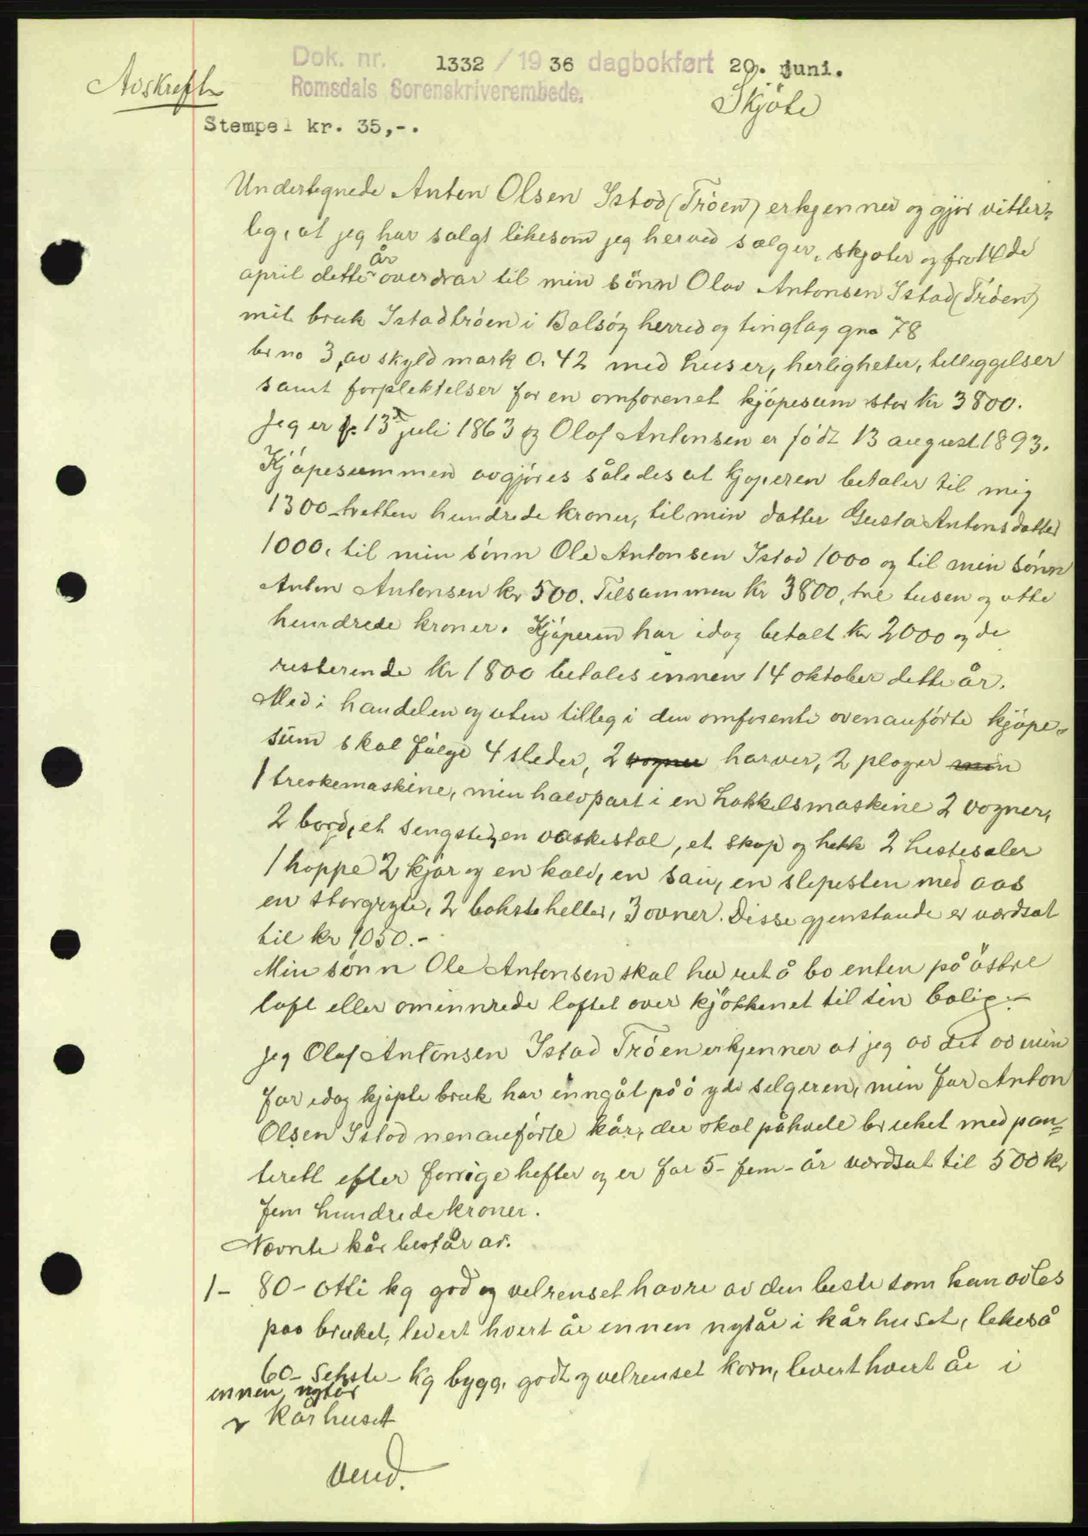 Avskreft
Dok. nr. 1332 / 19 36 dagbokført 20. juni.
Romsdals Sorenskriverembede.
Skjöte
Stempel kr. 35,-.
Undertegnede Anton Olsen Istad (Tröen) erkjenner og gjör vitter-
lig, at jeg har solgt likesom jeg herved sælger, skjøter og fra 14de
april dette år overdrar til min sönn Olav Antonsen Istad (Tröen)
mit bruk Istadtröen i Bolsöy herred og tinglag gno 78
br no 3, av skyld mark 0.42 med huser, herligheter, tilleggelser
samt forpliktelser for en omforenet kjöpesum stor kr 3800.
Jeg er f. 13 juli 1863 og Olaf Antonsen er född 13 august 1893.
Kjöpesummen avgjöres således at kjøperen betaler til mig
1300 - tretten hundrede kroner, til min datter Gusta Antonsdatter
1000, til min sönn Ole Antonsen Istad 1000 og til min sönn
Anton Antonsen kr 500. Tilsammen kr 3800, tre tusen og otte
hundrede kroner. Kjöperen har idag betalt kr 2000 og de
resterende kr 1800 betales innen 14 oktober dette år.
Med i handelen og uten tilleg i den omforente ovenanförte kjöpe-
sum skal fölge 4 sleder, 2 vogner harver, 2 ploger min
1 treskemaskine, min halvpart i en hakkelsmaskine 2 vogner,
2 bord, et sengsted, en vaskestol, et skap og hekk 2 hestesaler
1 hoppe 2 kjör og en kalv, en sau, en slipesten med aas
en storgryte, 2 baksteheller, 3 ovner. Disse gjenstande er værdsat
til kr 1050.-
Min sönn Ole Antonsen skal ha ret å bo enten på östre
loft eller ominnrede loftet over kjökkenet til sin bolig.-
Jeg Olaf Antonsen Istad Tröen erkjenner at jeg av det av min
far idag kjöpte bruk har inngåt på å yde selgeren, min far Anton
Olsen Istad nenanförte kår, der skal påhvile bruket med pan-
terett efter forrige hefter og er for 5 - fem - år værdsat til 500 kr
fem hundrede kroner.
Nævnte kår består av.
1 - 80 - otti kg god og velrenset havre av den beste som kan avles
paa bruket, levert hvert år innen nytår i kårhuset, likeså
60 - seksti - kg bygg, godt og velrenset korn, levert hvert år i
innen nytår
kårhuset
vend.